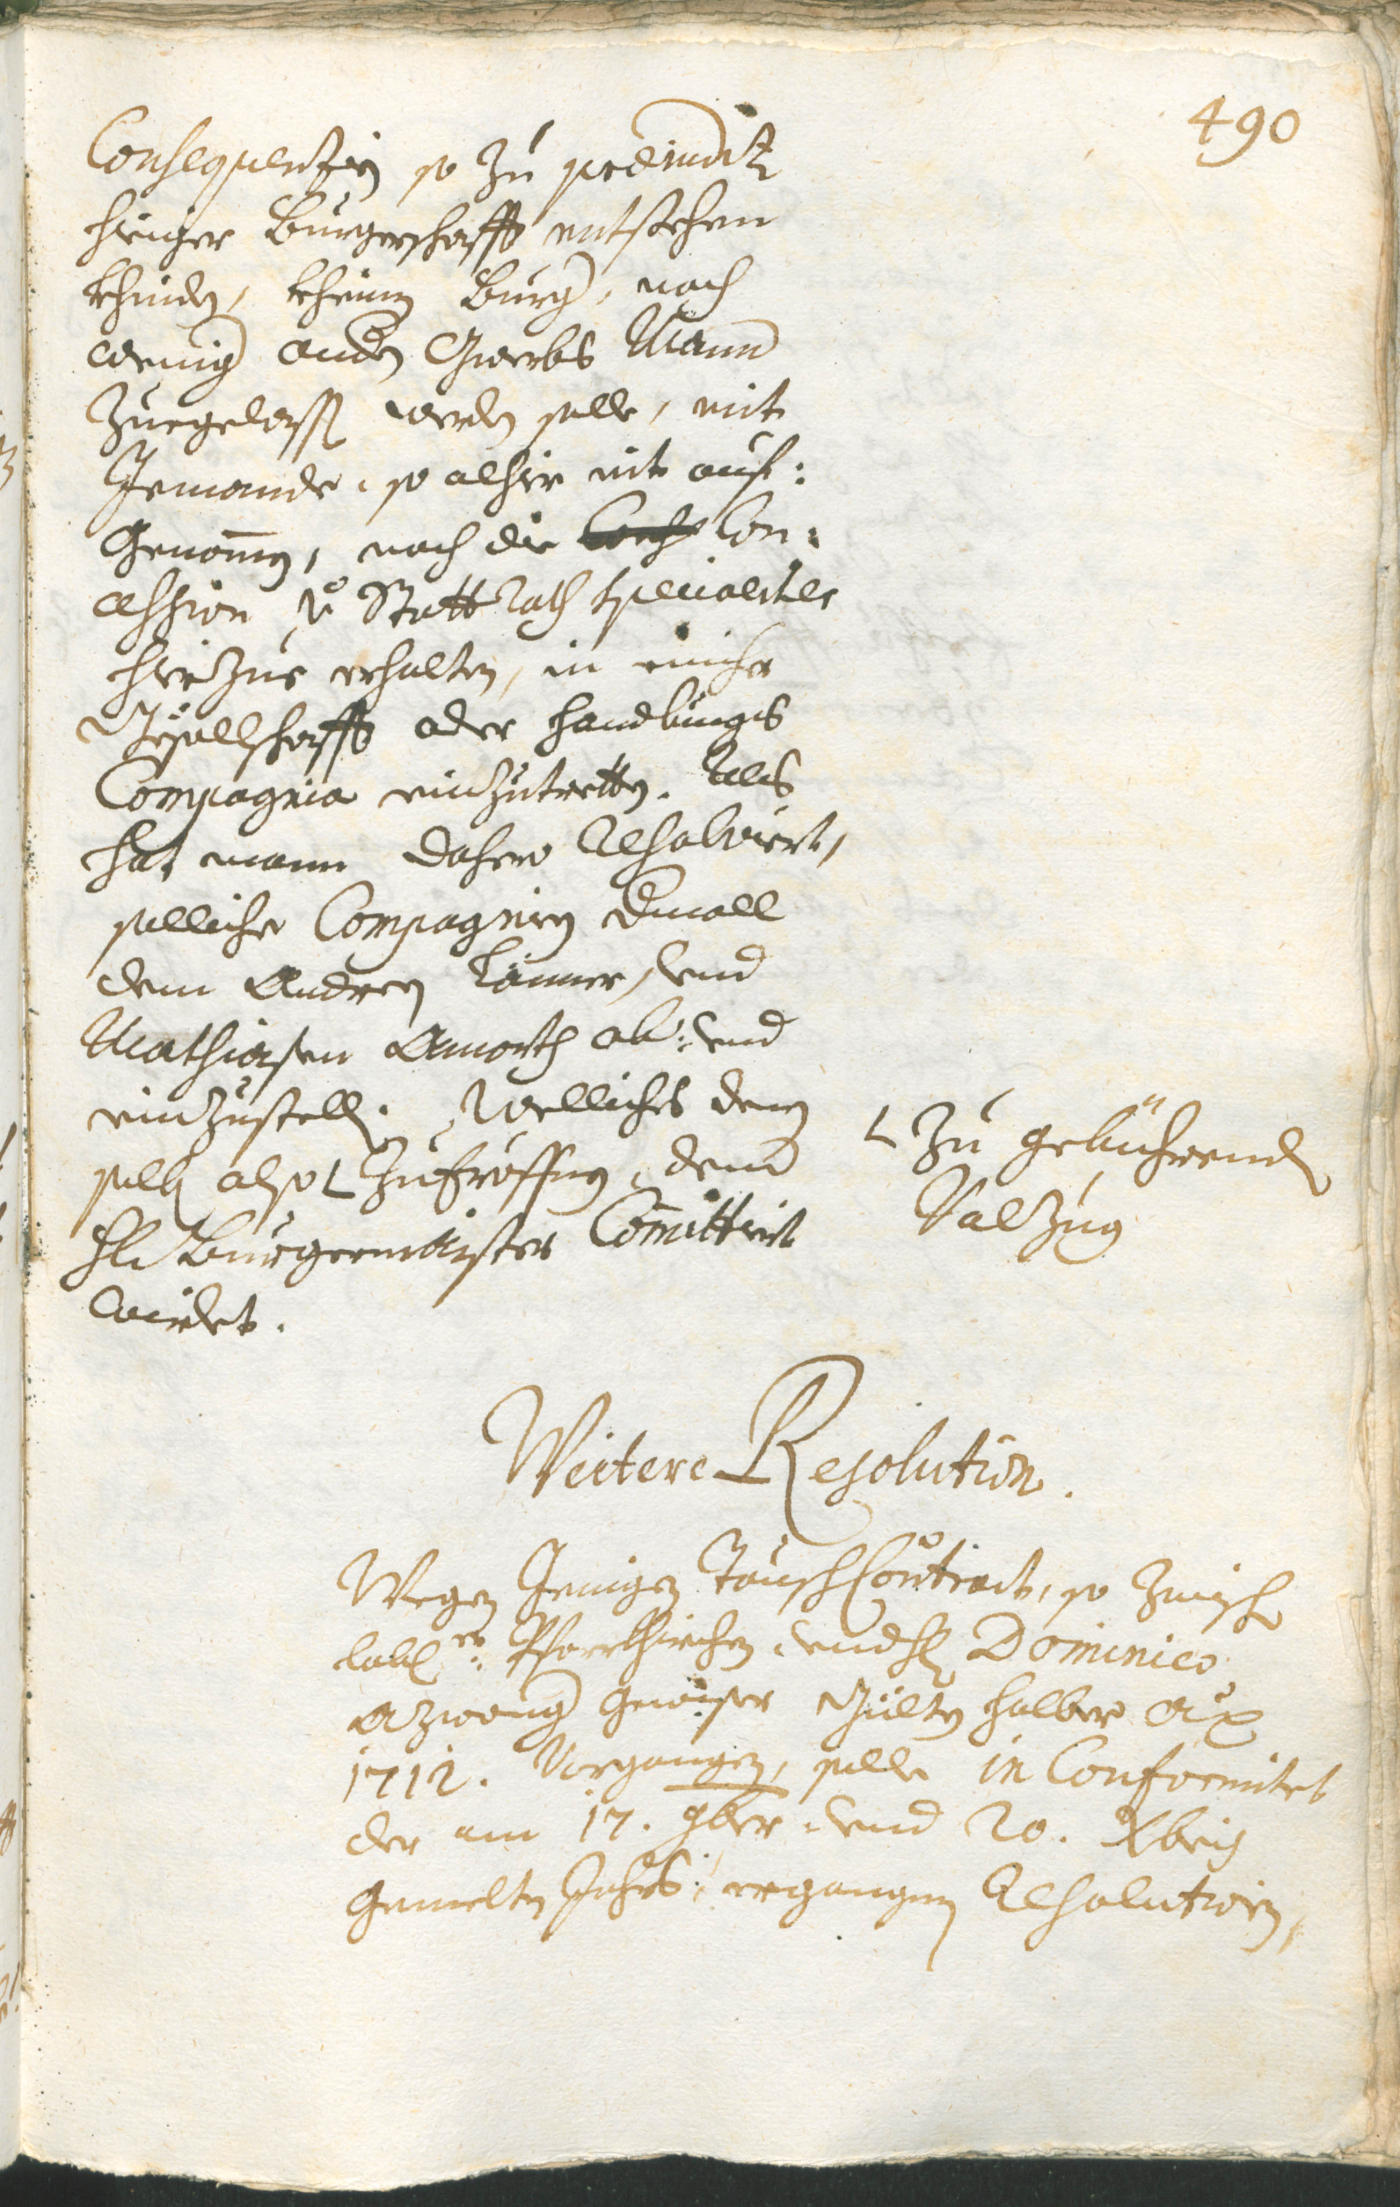 490
Consequentien so zu preiudiz
hieiger Burgerschafft entstehen
khinden, kheinem Burg., noch
wenig. andern Gwerbs Mann
zuegelassen werden solle, mit
Jemande, so alhier nit auf:
Genomen, noch die Con:
cession v. Statt Rath specialiter
hierzue erhalten, in einiche
Gesöllschafft oder Handlungs
Compagnia einzutretten. Als
hat mann dahero Resolviert,
solliche Compagnien
dem Andreen und
Mathiasen Amorth ab: und
einzustellen. Welliches dem
selben also zueröffnen, dem
Hr. Burgermaister Comittiert
wirdet.
zu gebührendem
Volzug
Weitere Resolution.
Wegen Jenigen Tausch Contract, so zwischen
löbl: Pfarrkhirchen, und H. Dominico
Azwang Gewiser Gülten halber Ao
1712. Vorgangen, solle in Conformitet
der am 17. 9ber. und 20. Xbris
Gemelten Jahrs, ergangnen Resolution,